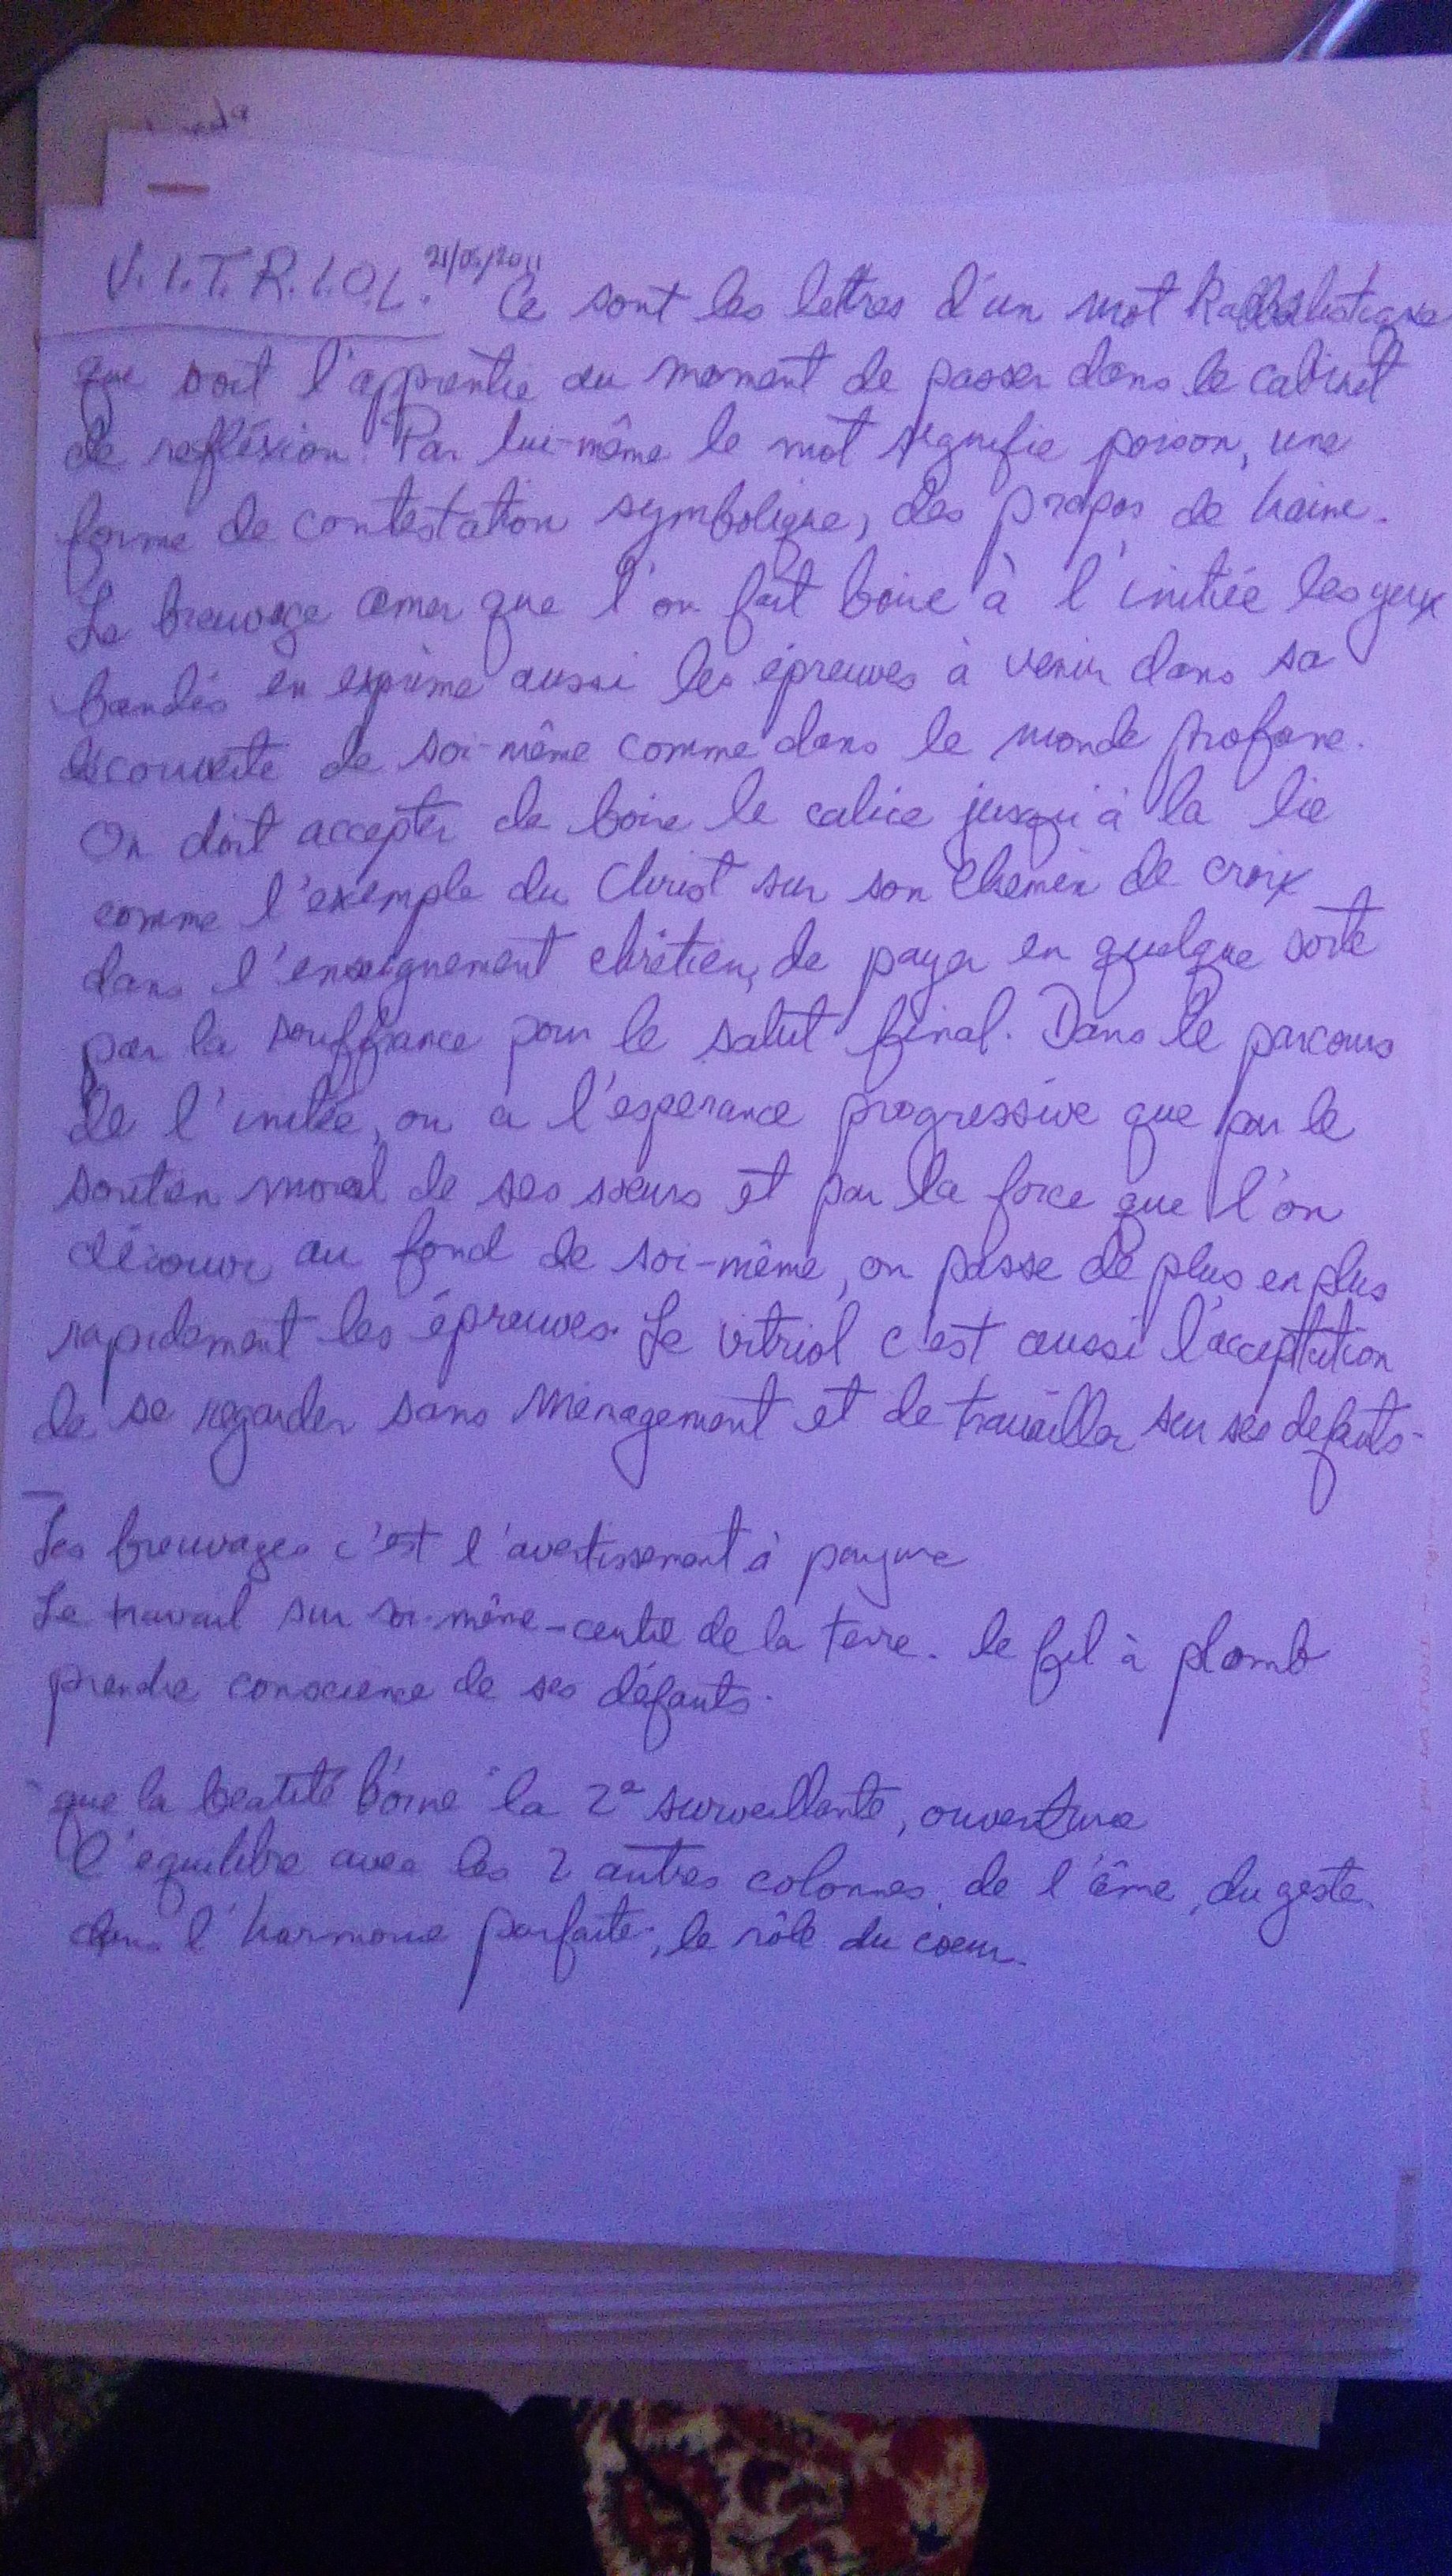 V.I.T.R.I.O.L. Ce sont les lettres d'un mot
que voit l'apprentie au moment de passer dans le cabinet
de refléxion. Par lui-même le mot signifie poison, une
forme de contestation symbolique, des propos de haine.
Le breuvage amer que l'on fait boire à l'initiée les yeux
bandés en exprime aussi les épreuves à venir dans sa
découverte de soi-même comme dans le monde profane.
On doit accepter de boire le calice jusqu'à la lie
comme l'exemple du Christ sur son chemin de croix
dans l'enseignement chrétien, de payer en quelque sorte
par la souffrance pour le salut final. Dans le parcours
de l'initiée, on a l'esperance progressive que par le
soutien moral de ses soeurs et par la force que l'on
découvre au fond de soi-même, on passe de plus en plus
rapidement les épreuves. Le vitriol c'est aussi l'acceptation
de se regarder sans ménagement et de travailler sur ses defauts.
Les breuvages c'est l'avertissement à
Le travail sur soi-même - centre de la terre. le fil à plomb
prendre conscience de ses défauts.
que la beauté l'orne" la 2e surveillante, ouverture
l'equilibre avec les 2 autres colonnes, de l'âme, du geste.
dans l'harmonie parfaite, le rôle du coeur.